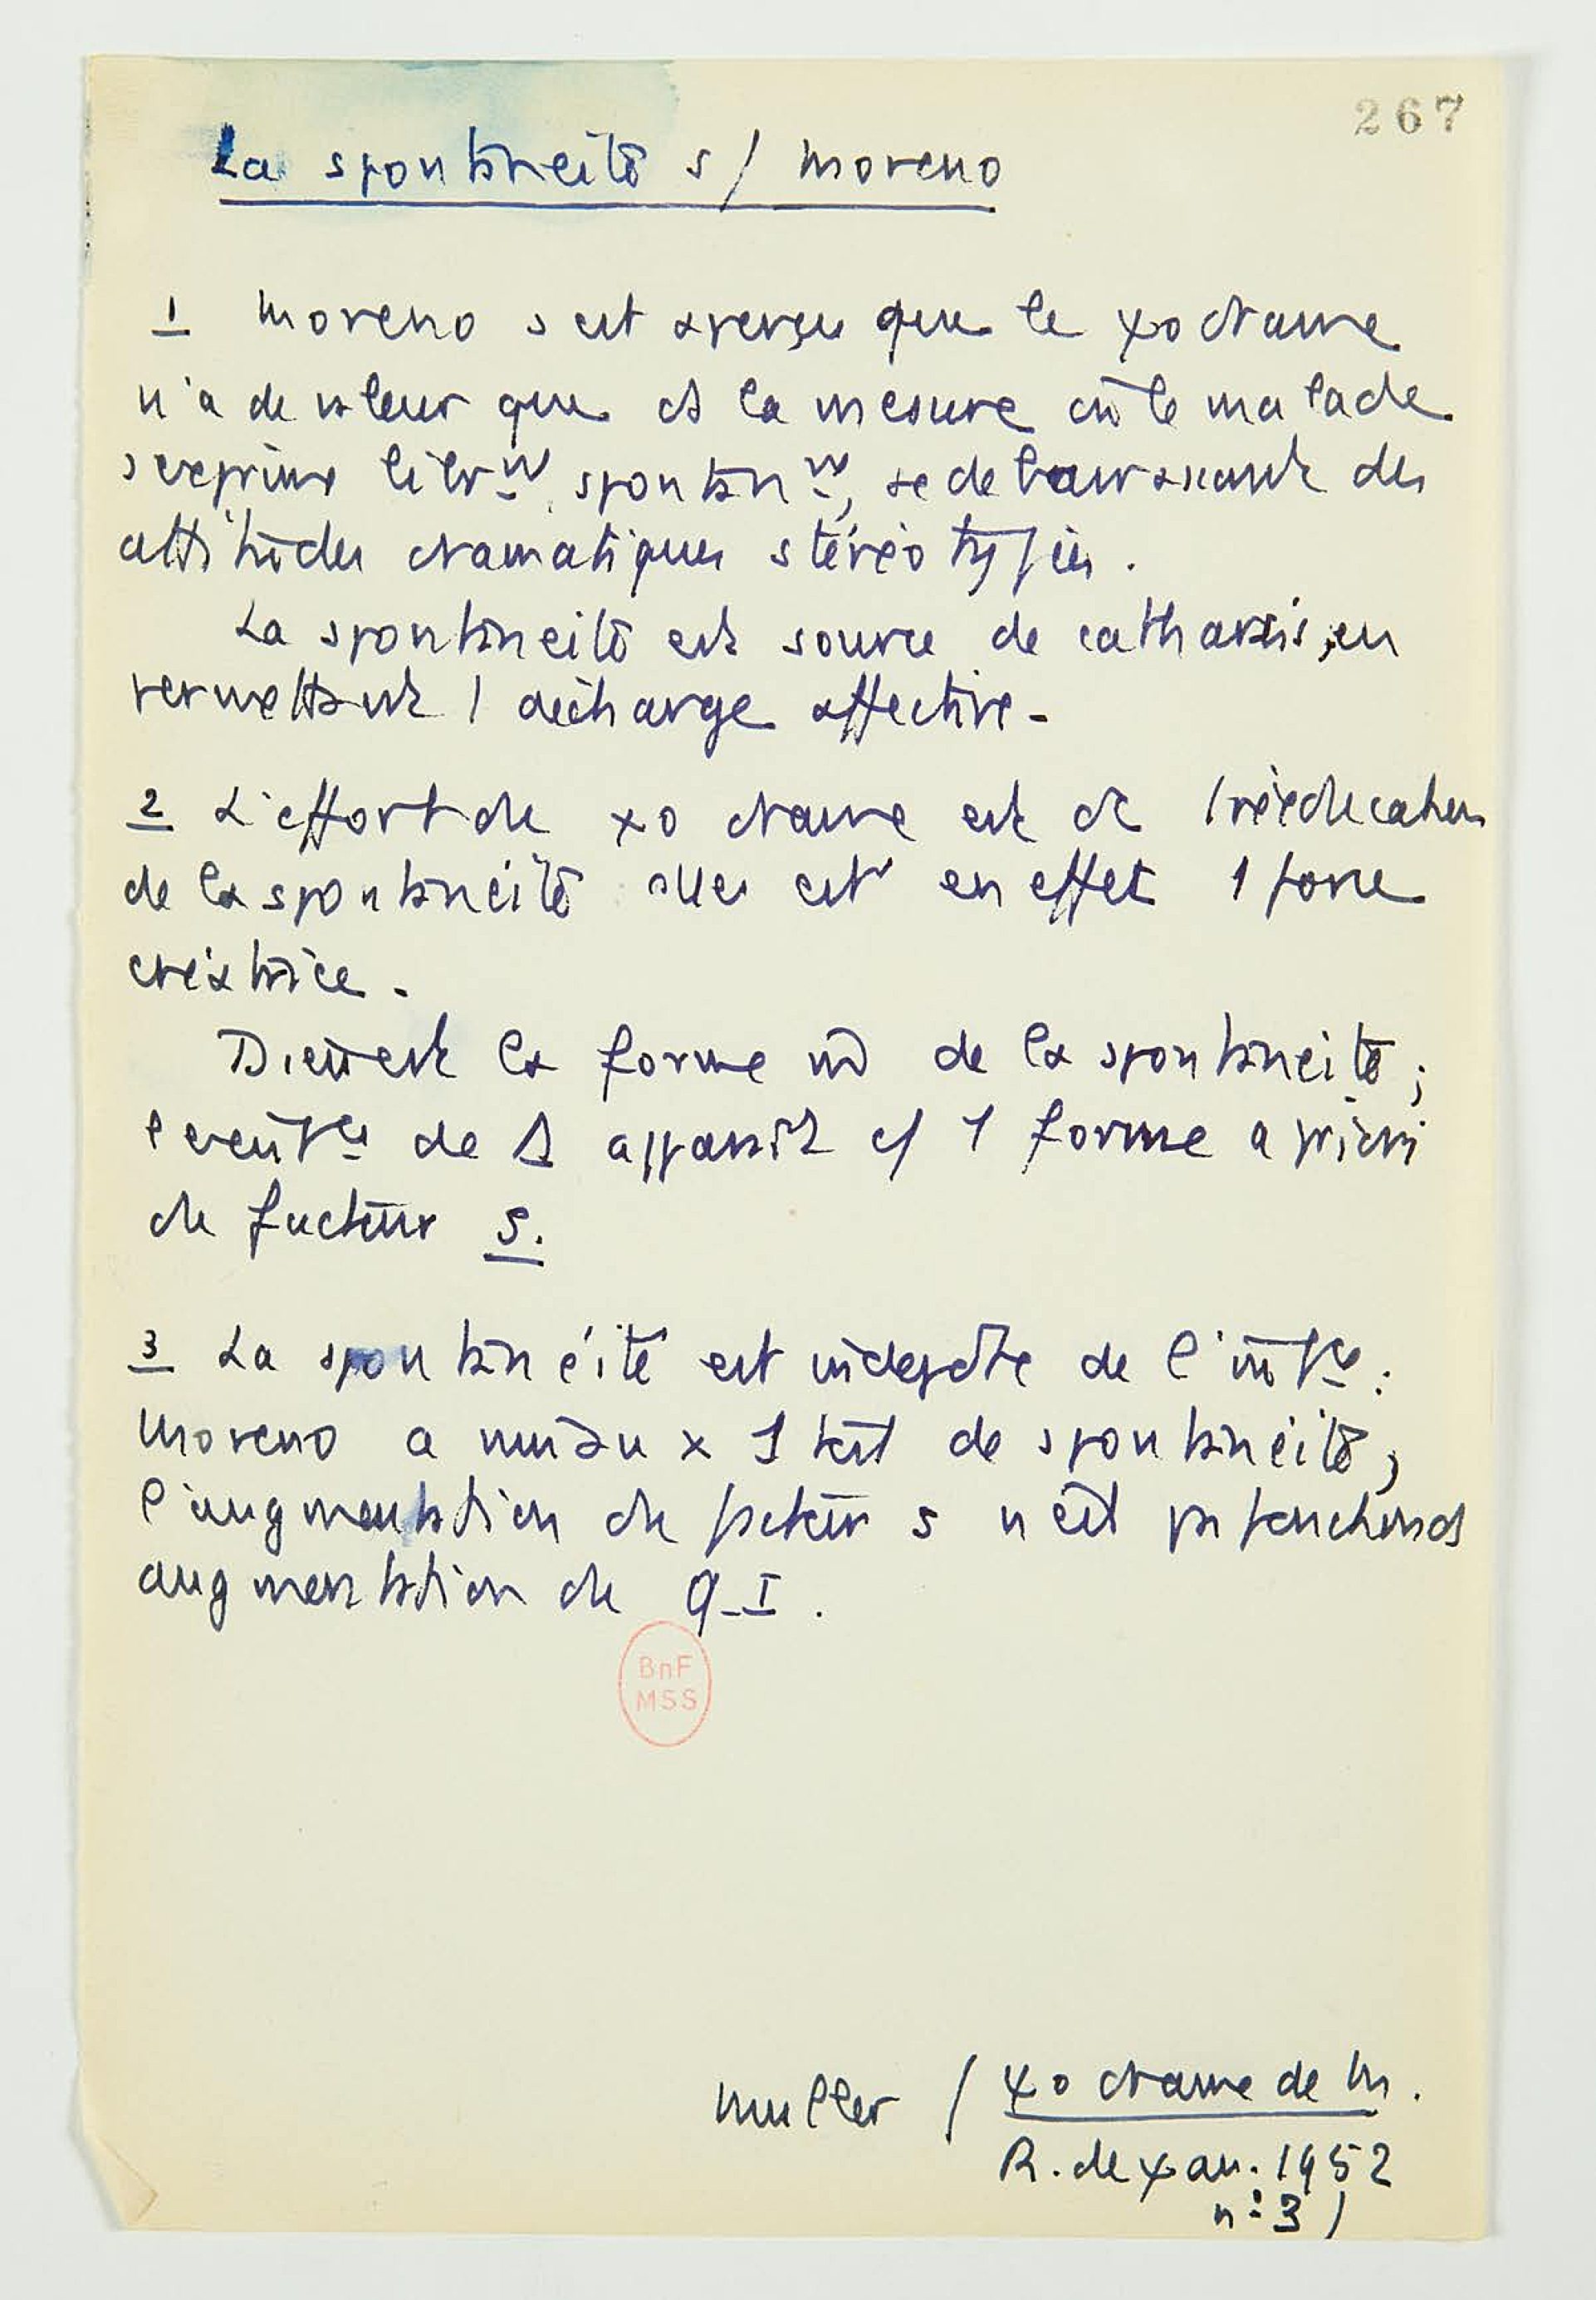 267
La spontanéité s/ Moreno
1 Moreno s'est aperçu que le ψodrame
n'a de valeur que ds la mesure où le malade
s'exprime librᵐᵗ, spontanᵐᵗ, se débarrassant des
attitudes dramatiques stéréotypées.
La spontanéité est source de catharsis, en
permettant 1 décharge affective.
2 L'effort du ψodrame est dc 1 rééducation
de la spontanéité : elle est en effet 1 force
créatrice.
Dieu est la forme de la spontanéité ;
de apparaît c/ 1 forme a priori
du facteur s.
3 La spontanéité est indepdte de l'intce :
Moreno a mis au x 1 test de spontanéité,
l'augmentation du facteur s n'est pas fonction d
augmentation du Q.I.
BnF
MSS
Muller / ψodrame de M.
R. de ψan. 1952
n° 3 )